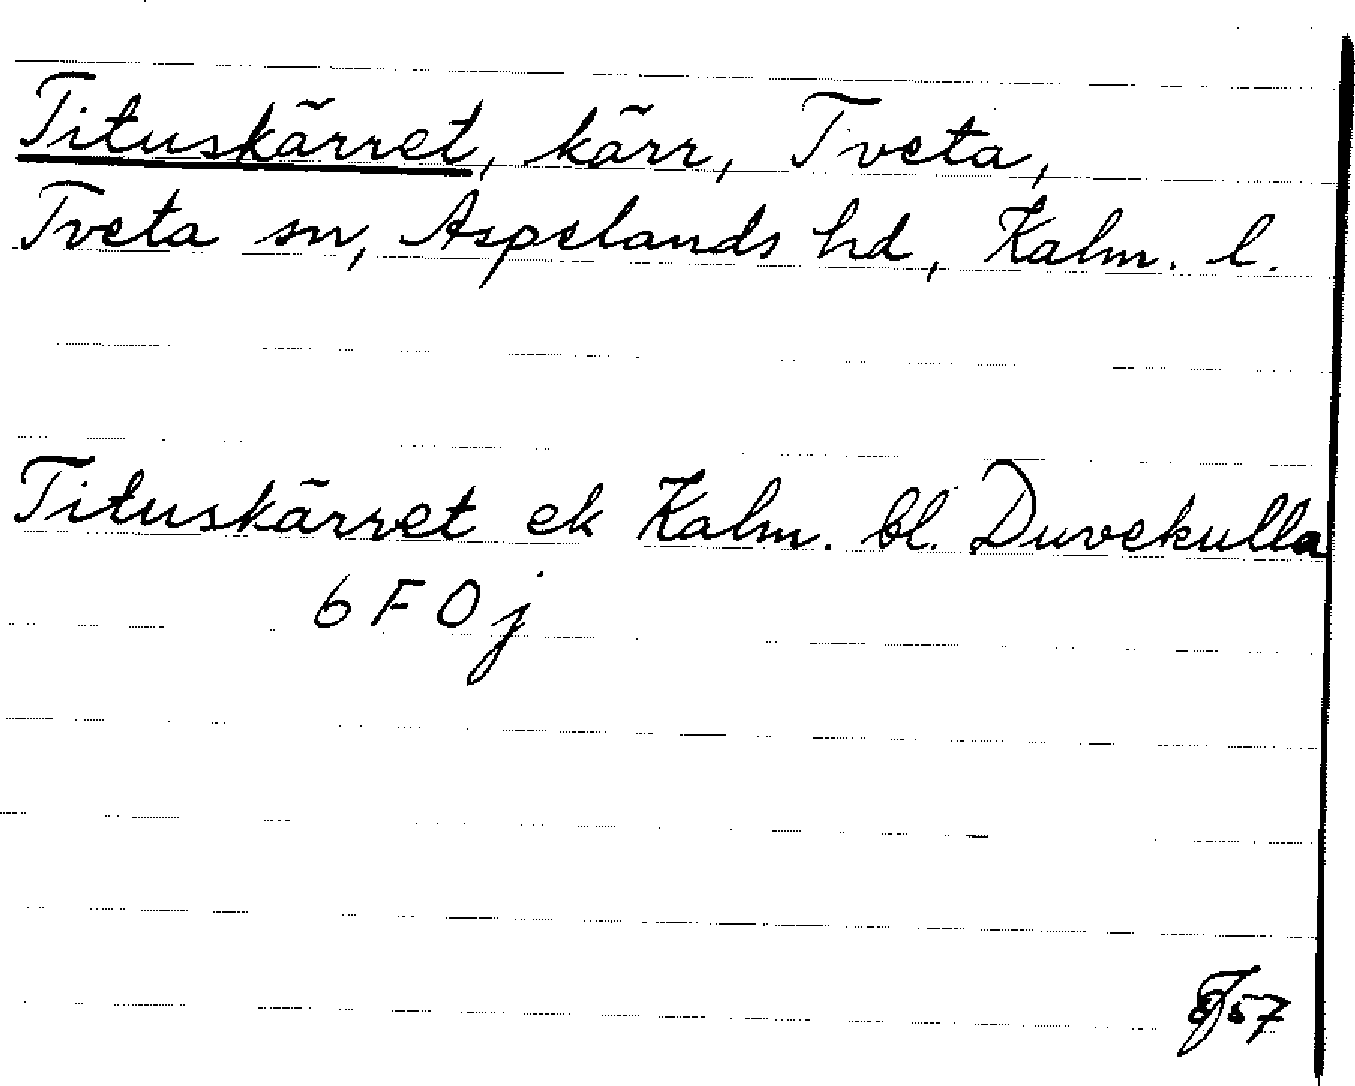 Tituskärret, kärr, Tveta,
Tveta sn, Aspelands hd, Kalm. l.
Tituskärret ek Kalm. bl. Duvekulla
6 F 0 j
57